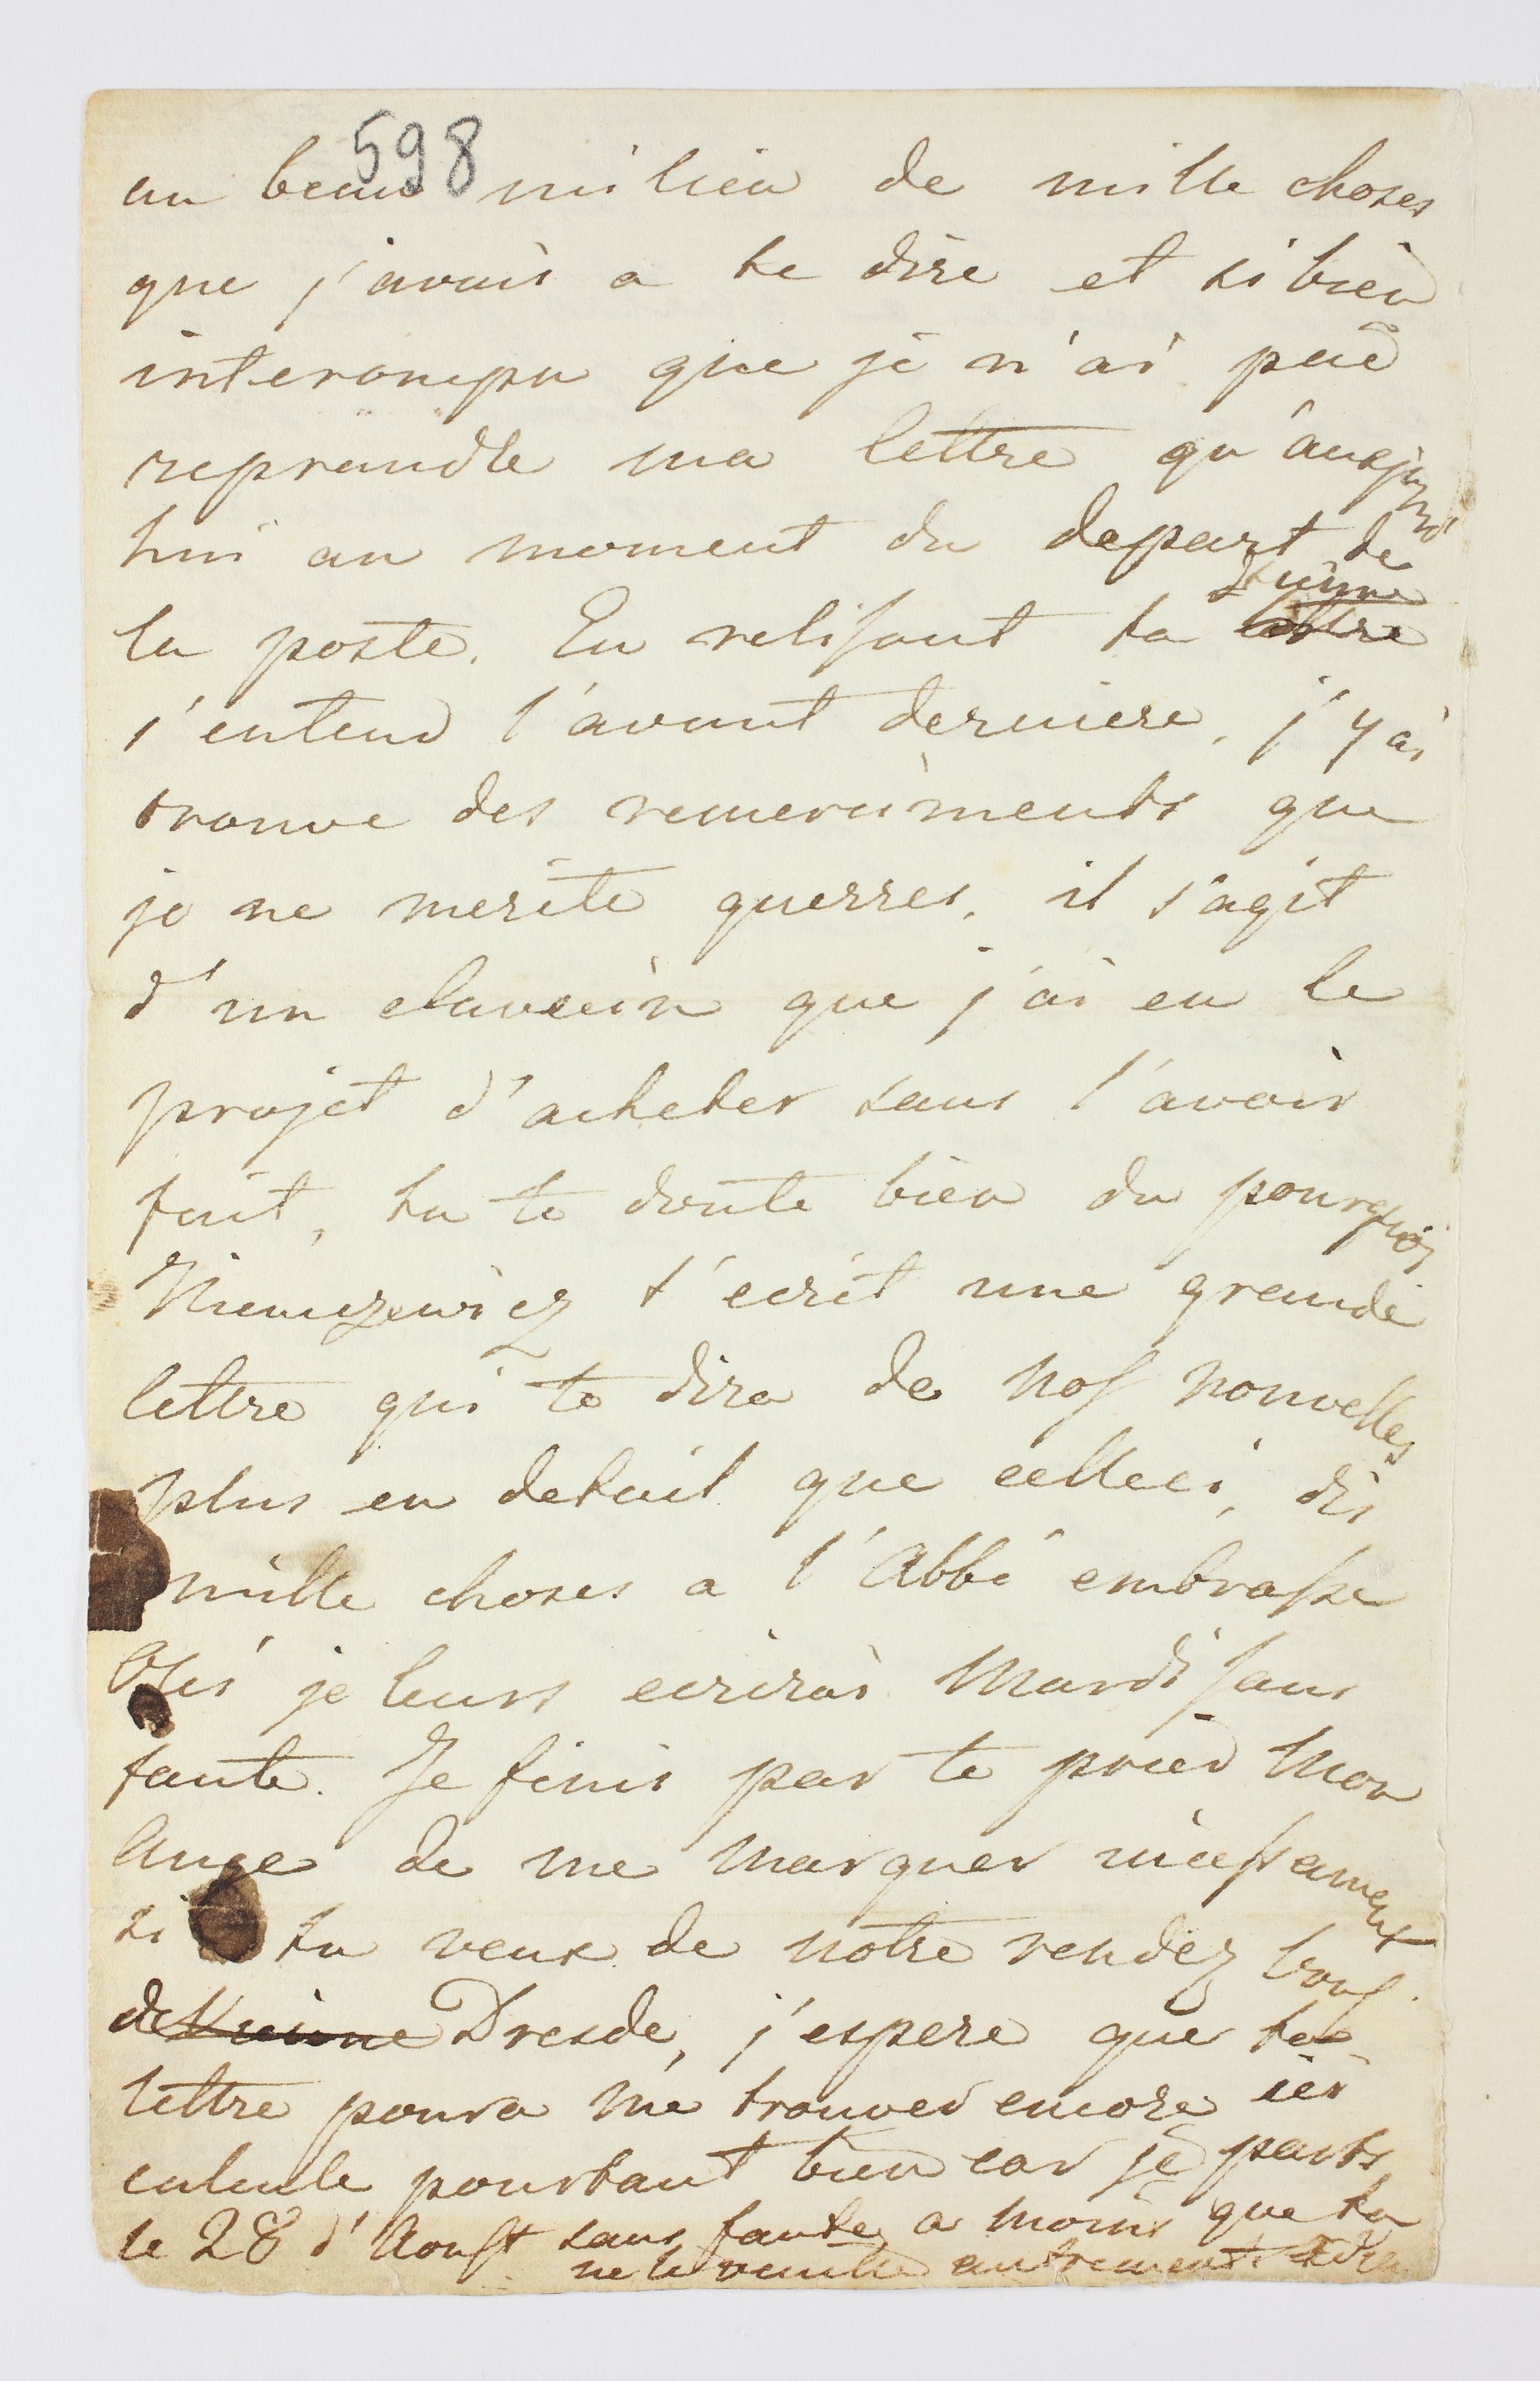 598
au beau milieu de mille choses
que j'avais a te dire et si bien
interompu que je n'ai pue
reprandre ma lettre qu'aujourd
hui au moment du depart de
la poste. En relisant ta lettre
j'entend l'avant derniere, j'y ai
trouve des remerciments que
je ne merite guerres, il s'agit
d'un clavecin que j'ai eu le
projet d'acheter sans l'avoir
fait, tu te doute bien du pourquoi
Niemczewicz t'ecrit une grande
lettre qui te dira de nos nouvelles
plus en detail que celleci, dis
mille choses a l'Abbé embrasse
je leurs ecrirai Mardi sans
faute. Je finis par te prier Mon
Ange de me marquer
si tu veux de notre rendez vous
de Vienne Dresde, j'espere que ta
lettre poura me trouver encore ici
calcule pourtant bien car je parts
le 28 d'Aoust sans faute, a moins que tu
ne le veuille autrement. Adieu